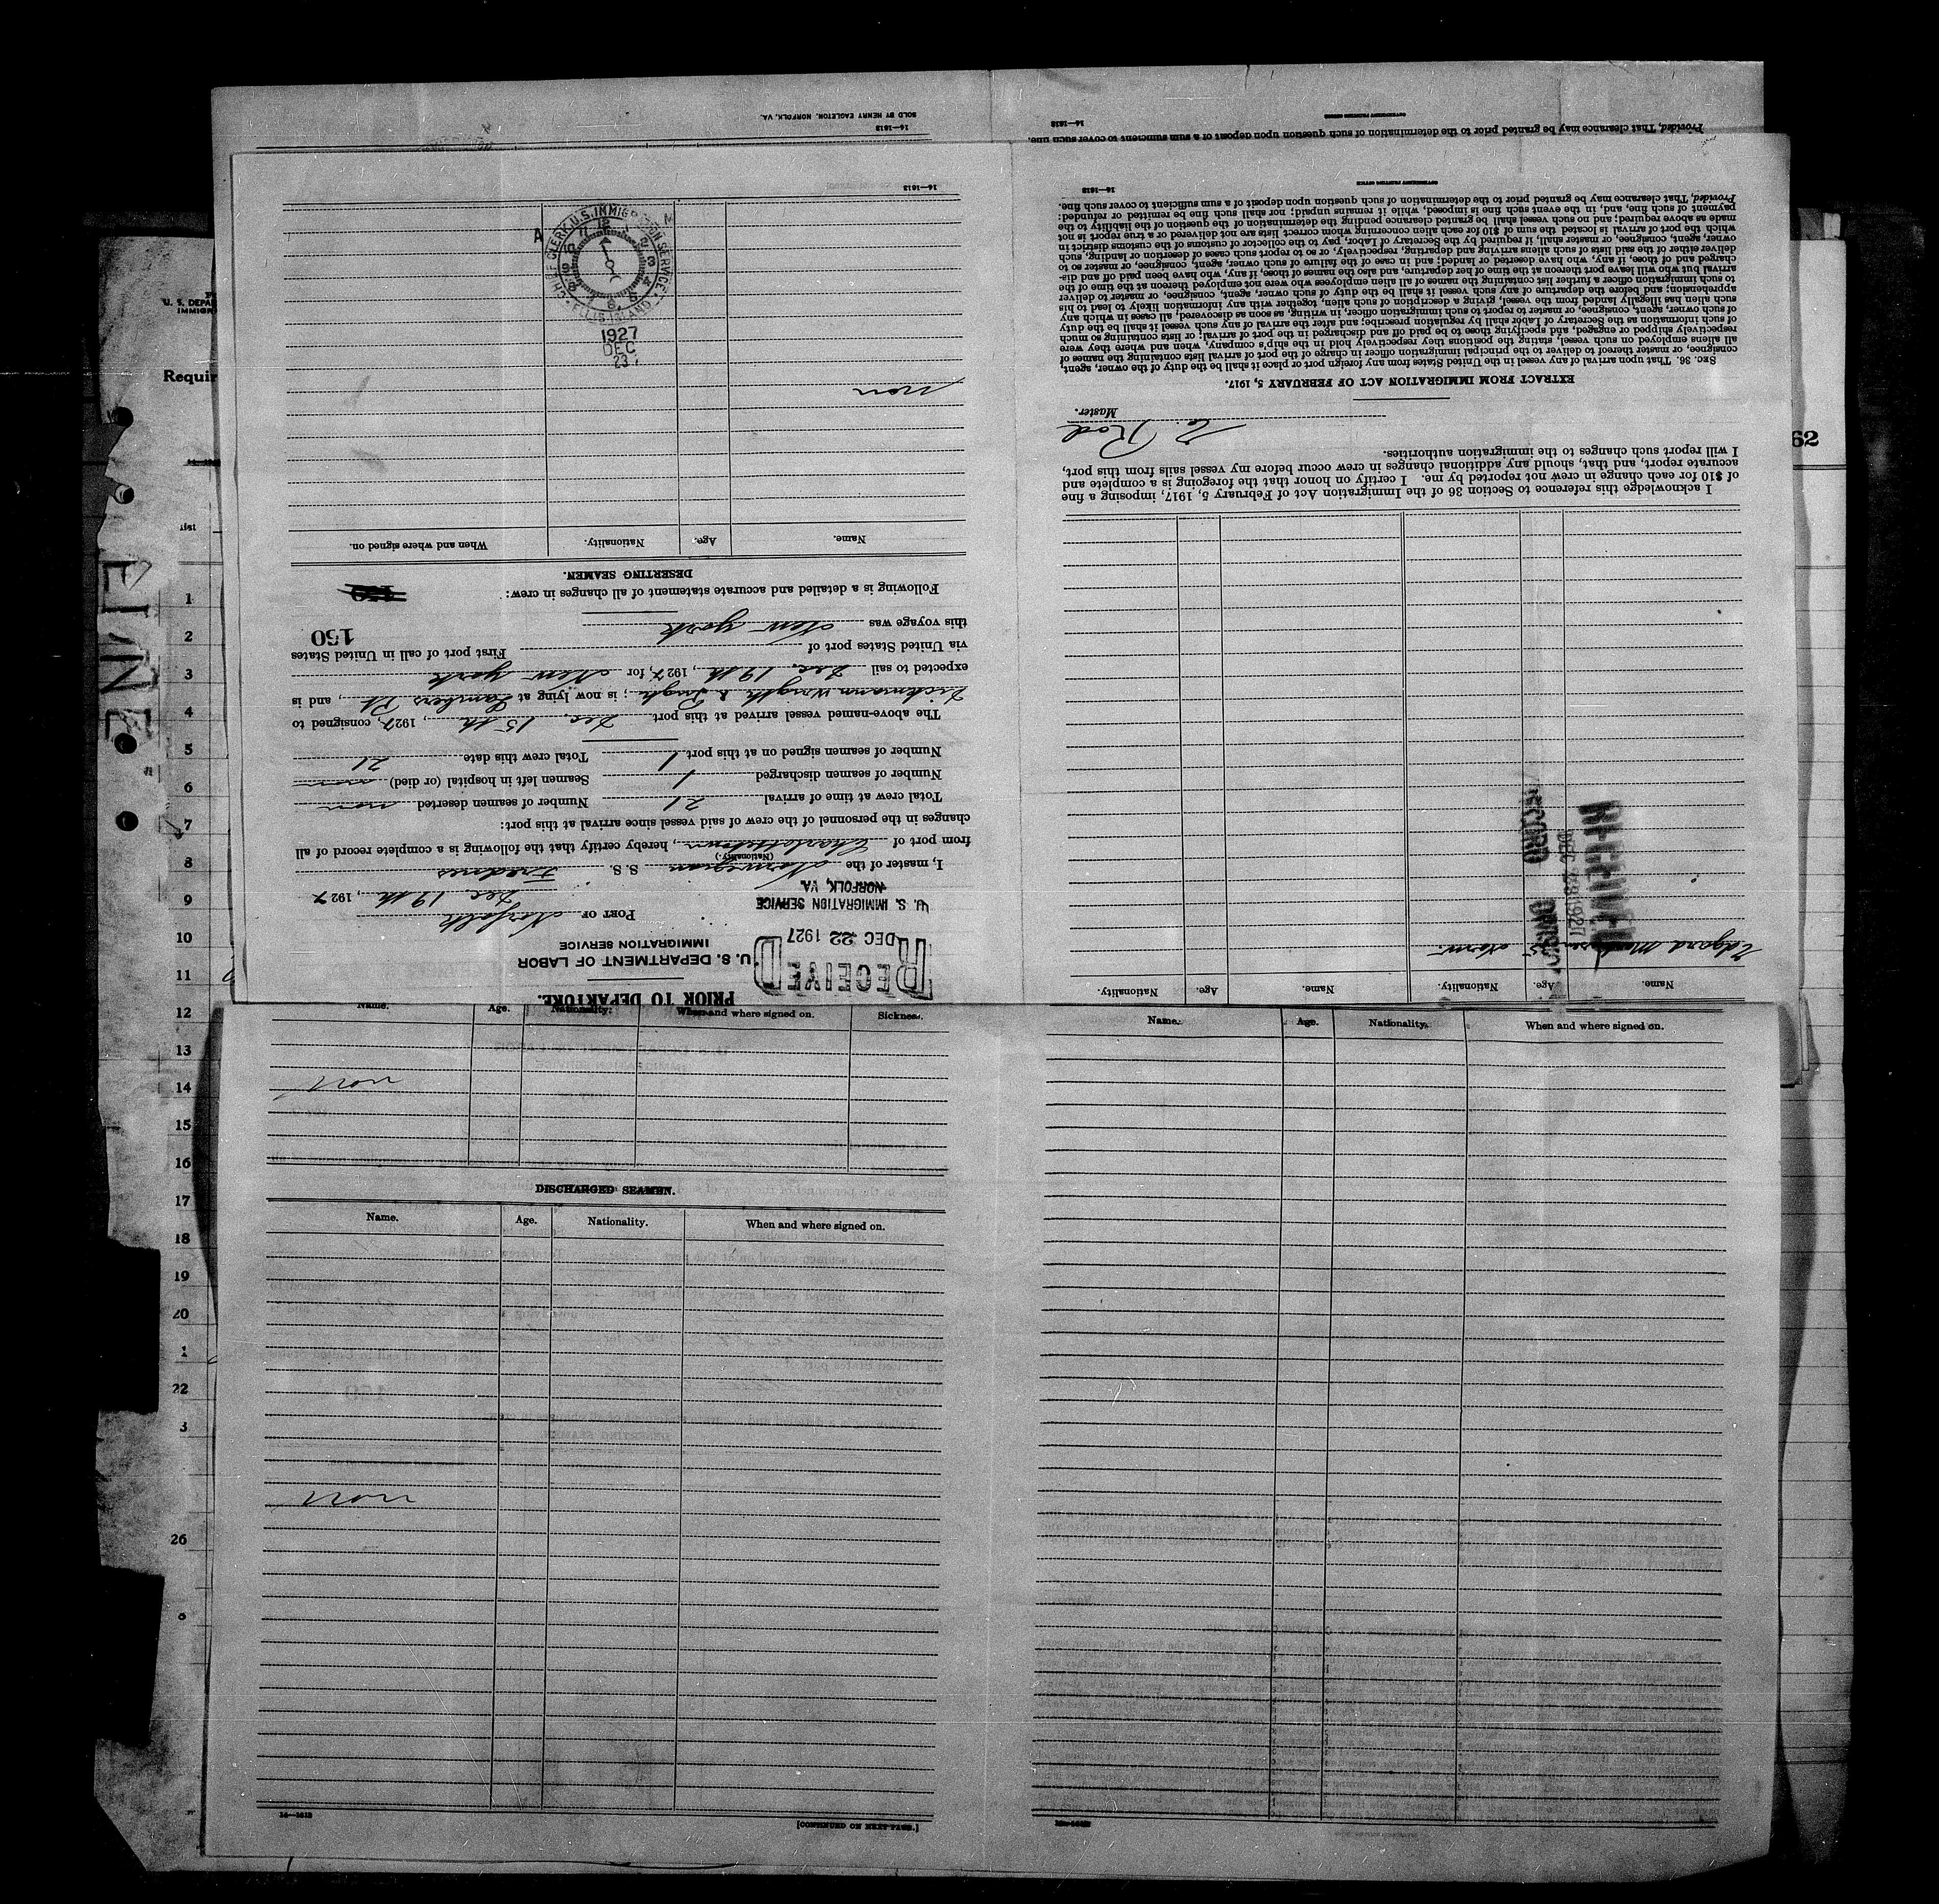 PRIOR TO DEPARTURE.
U. S. DEPARTMENT OF LABOR
IMMIGRATION SERVICE
RECEIVED
DEC 22 1927
U. S. IMMIGRATION SERVICE
NORFOLK, VA.
PORT OF Norfolk
Dec 19th, 1927
I, master of the Norwegian S. S. Frednes
(Nationality.)
from port of Charlottetown, hereby certify that the following is a complete record of all
changes in the personnel of the crew of said vessel since arrival at this port:
Total crew at time of arrival 21 Number of seamen deserted non
Number of seamen discharged 1 Seamen left in hospital (or died) non
Number of seamen signed on at this port 1 Total crew this date 21
The above-named vessel arrived at this port Dec 15th, 1927, consigned to
Dickmann Wright & Pugh; is now lying at Lamberts Pt, and is
expected to sail Dec. 19th, 1927, for New york
via United States port of First port of call in United States
this voyage was New york
150
Following is a detailed and accurate statement of all changes in crew:
DESERTING SEAMEN.
Name. Age. Nationality. When and where signed on.
non
1927
DEC
23
CHIEF CLERK U.S. IMMIGRATION SERVICE
ELLIS ISLAND
14—1613
Name. Age. Nationality. Name. Age. Nationality.
Norw.
RECEIVED
DEC 28 1927
RECORD
I acknowledge this reference to Section 36 of the Immigration Act of February 5, 1917, imposing a fine
of $10 for each change in crew not reported by me. I certify on honor that the foregoing is a complete and
accurate report, and that, should any additional changes in crew occur before my vessel sails from this port,
I will report such changes to the immigration authorities.
Master.
EXTRACT FROM IMMIGRATION ACT OF FEBRUARY 5, 1917.
SEC. 36. That upon arrival of any vessel in the United States from any foreign port or place it shall be the duty of the owner, agent,
consignee, or master thereof to deliver to the principal immigration officer in charge of the port of arrival lists containing the names of
all aliens employed on such vessel, stating the positions they respectively hold in the ship's company, when and where they were
respectively shipped or engaged, and specifying those to be paid off and discharged in the port of arrival; or lists containing so much
of such information as the Secretary of Labor shall by regulation prescribe; and after the arrival of any such vessel it shall be the duty
of such owner, agent, consignee, or master to report to such immigration officer, in writing, as soon as discovered, all cases in which any
such alien has illegally landed from the vessel, giving a description of such alien, together with any information likely to lead to his
apprehension; and before the departure of any such vessel it shall be the duty of such owner, agent, consignee, or master to deliver
to such immigration officer a further list containing the names of all alien employees who were not employed thereon at the time of the
arrival but who will leave port thereon at the time of her departure, and also the names of those, if any, who have been paid off and dis-
charged and of those, if any, who have deserted or landed; and in case of the failure of such owner, agent, consignee, or master to
deliver either of the said lists of such aliens arriving and departing, respectively, or so to report such cases of desertion or landing, such
owner, agent, consignee, or master shall, if required by the Secretary of Labor, pay to the collector of customs of the customs district in
which the port of arrival is located the sum of $10 for each alien concerning whom correct lists are not delivered or a true report is not
made as above required; and no such vessel shall be granted clearance pending the determination of the question of the liability to the
payment of such fine, and, in the event such fine is imposed, while it remains unpaid; nor shall such fine be remitted or refunded:
Provided, That clearance may be granted prior to the determination of such question upon deposit of a sum sufficient to cover such fine.
14—1613
GOVERNMENT PRINTING OFFICE
Provided, That clearance may be granted prior to the determination of such question upon deposit of a sum sufficient to cover such fine.
14—1613
GOVERNMENT PRINTING OFFICE
14—1613
SOLD BY HENRY EAGLETON, NORFOLK, VA.
Name. Age. Nationality. When and where signed on. Sickness.
non
DISCHARGED SEAMEN.
Name. Age. Nationality. When and where signed on.
non
14—1613
[CONTINUED ON NEXT PAGE.]
Name. Age. Nationality. When and where signed on.
U. S. DEPA
IMMIGR
Requir
62
LINE
1
2
3
4
5
6
7
8
9
10
11
12
13
14
15
16
17
18
19
20
1
22
3
26